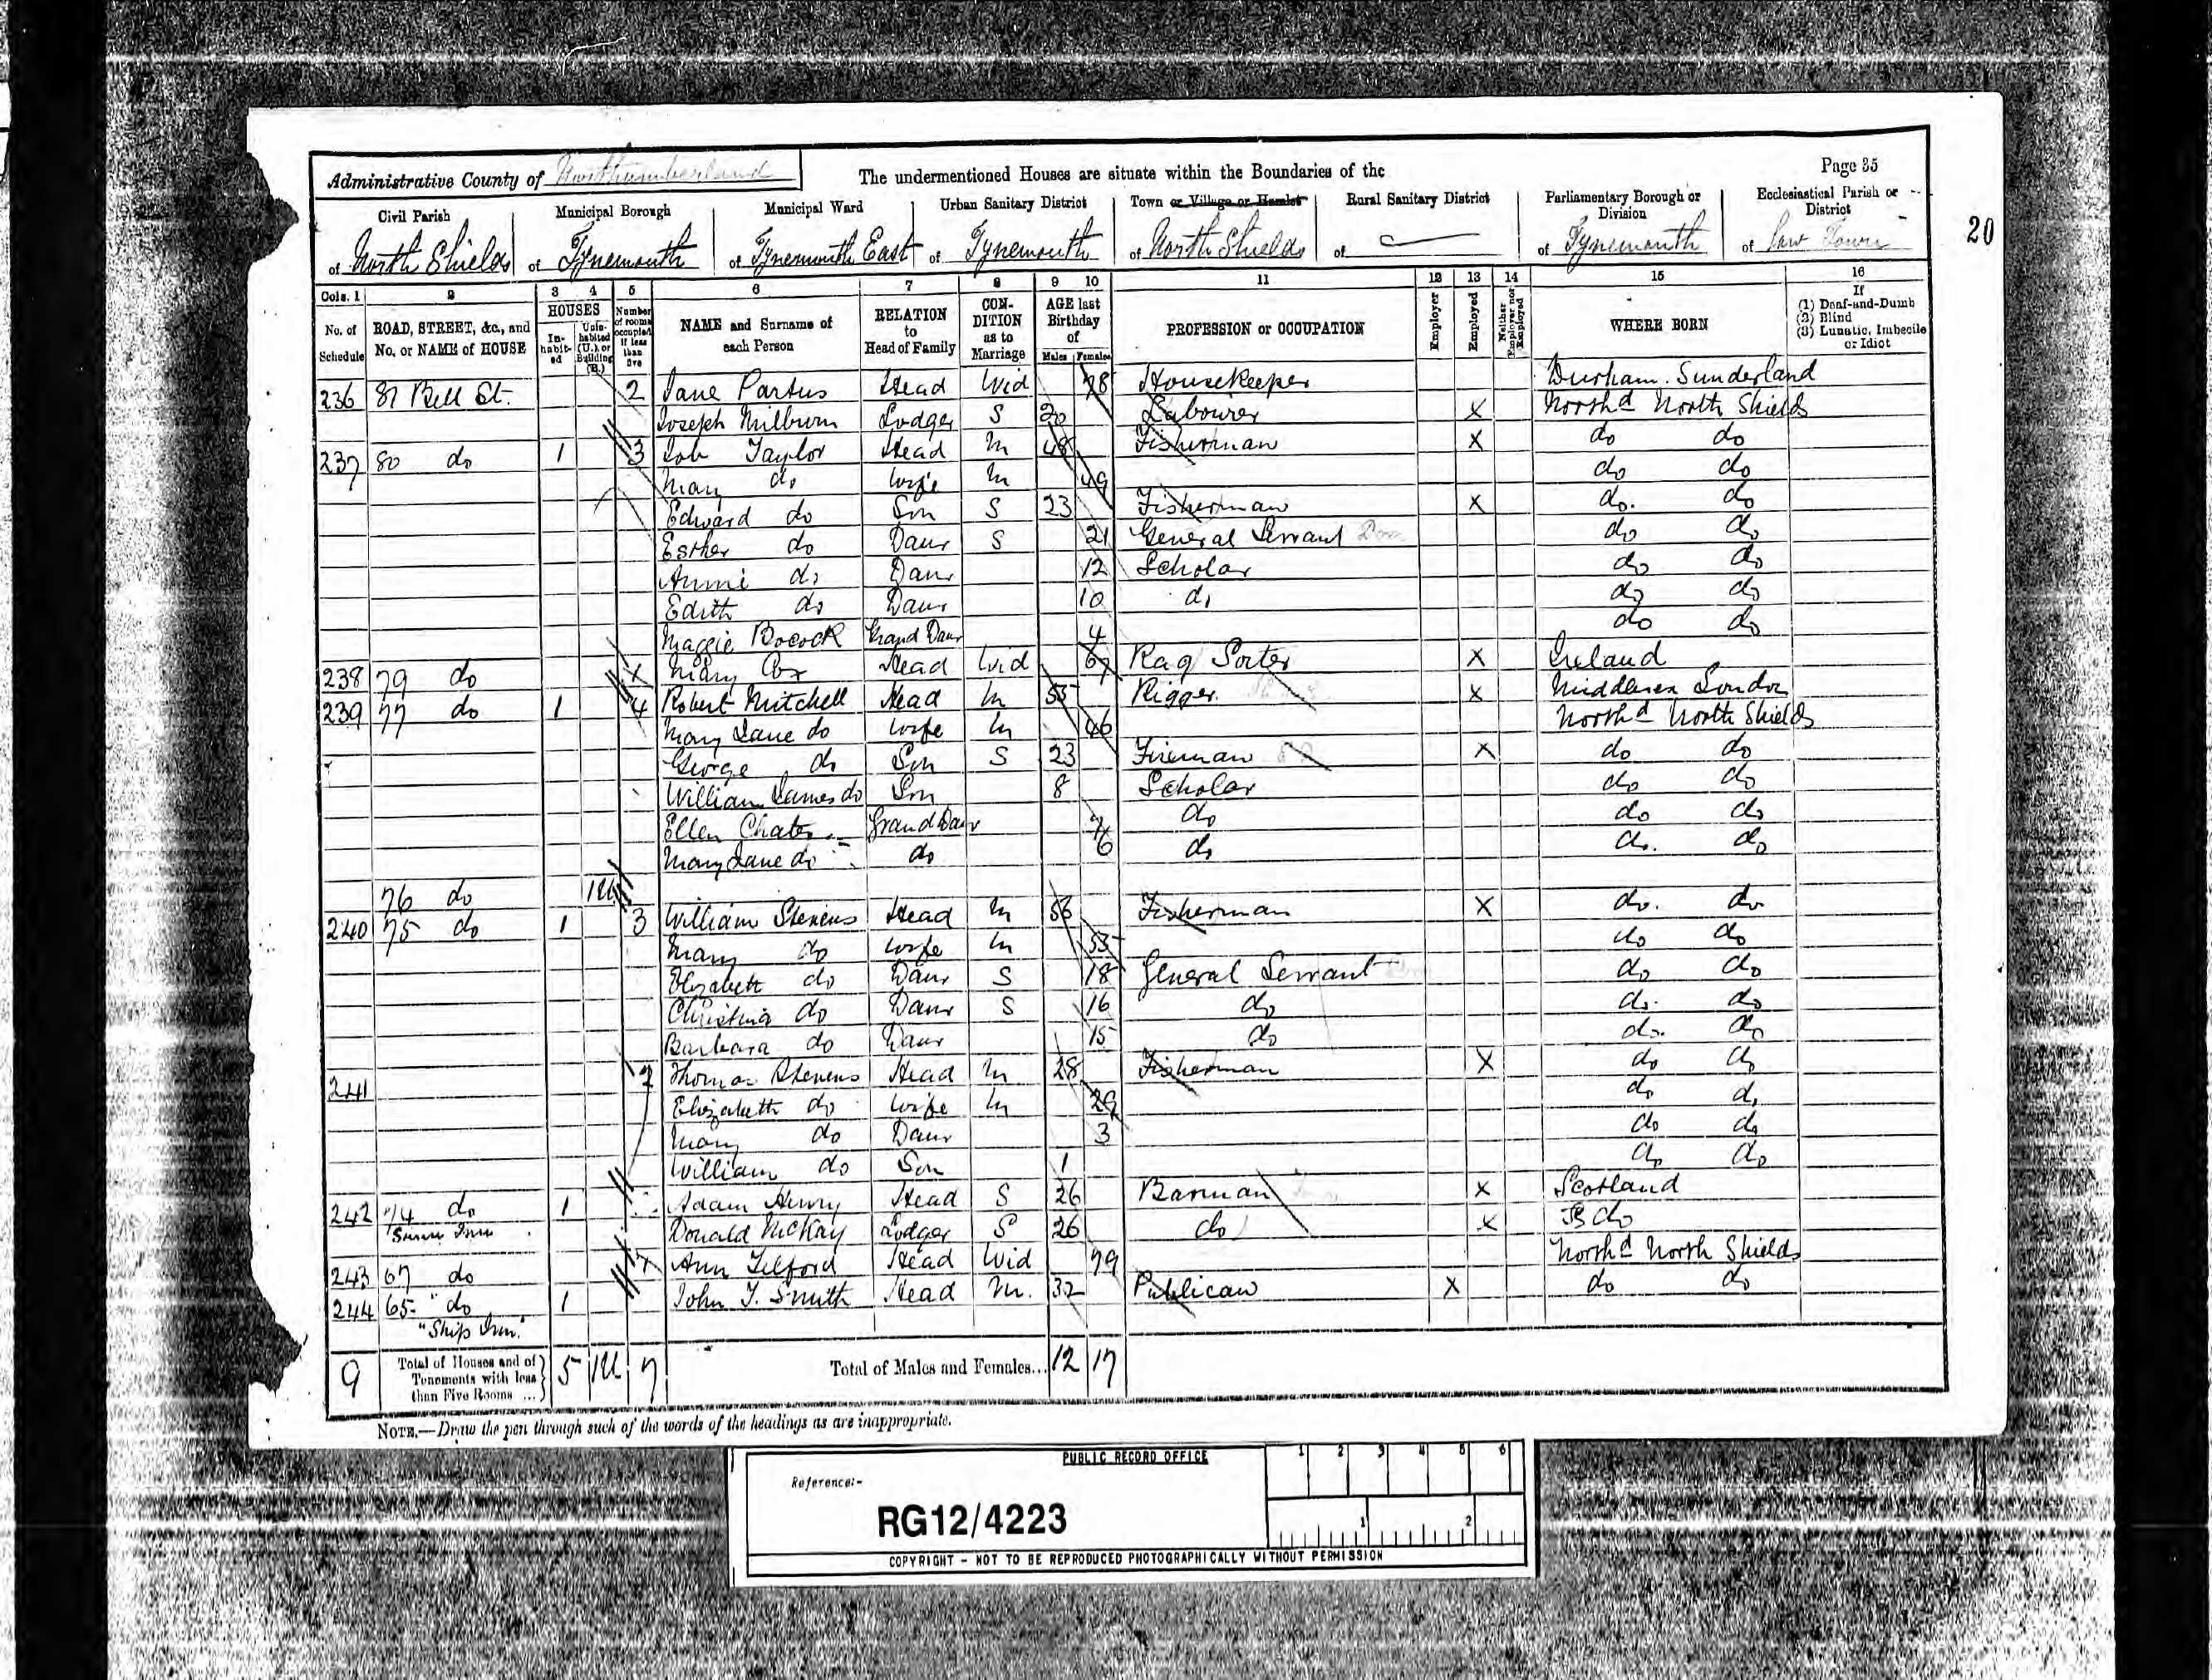 Administrative County of Northumberland
The undermentioned Houses are situate within the Boundaries of the
Page 35
Civil Parish
of North Shields
Municipal Borough
of Tynemouth
Municipal Ward
of Tynemouth East
Urban Sanitary District
of Tynemouth
Town or Village or Hamlet
of North Shields
Rural Sanitary District
of
Parliamentary Borough or Division
of Tynemouth
Ecclesiastical Parish or District
of Low Town
20
Cols. 1 2 3 4 5 6 7 8 9 10 11 12 13 14 15 16
No. of Schedule
ROAD, STREET, &c., and No. or NAME of HOUSE
HOUSES
In-habit-ed
Unin-habited (U.), or Building (B.)
Number of rooms occupied if less than five
NAME and Surname of each Person
RELATION to Head of Family
CON-DITION as to Marriage
AGE last Birthday of
Males Females
PROFESSION or OCCUPATION
Employer
Employed
Neither Employer nor Employed
WHERE BORN
If
(1) Deaf-and-Dumb
(2) Blind
(3) Lunatic, Imbecile or Idiot
236 81 Bell St. 2 Jane Partus Head Wid 78 Housekeeper Durham. Sunderland
Joseph Milburn Lodger S 20 Labourer X North'd North Shields
237 80 do 1 3 Job Taylor Head M 48 Fisherman X do do
Mary do Wife M 49 do do
Edward do Son S 23 Fisherman X do. do
Esther do Daur S 21 General Servant Dom do do
Annie do Daur 12 Scholar do do
Edith do Daur 10 do do do
Maggie Bocock Grand Daur 4 do do
238 79 do 1 Mary Cox Head Wid 67 Rag Sorter X Ireland
239 77 do 1 4 Robert Mitchell Head M 55 Rigger X Middlesex London
Mary Jane do Wife M 46 North'd North Shields
George do Son S 23 Fireman X do do
William James do Son 8 Scholar do do
Ellen Chater Grand Daur 7 do do do
Mary Jane do do 6 do do. do
76 do 1U
240 75 do 1 3 William Stevens Head M 56 Fisherman X do. do
Mary do Wife M 55 do do
Elizabeth do Daur S 18 General Servant do do
Christina do Daur S 16 do do. do
Barbara do Daur 15 do do. do
241 2 Thomas Stevens Head M 28 Fisherman X do do
Elizabeth do Wife M 29 do do
Mary do Daur 3 do do
William do Son 1 do do
242 74 do 1 Adam Henry Head S 26 Barman X Scotland
Inn Donald McKay Lodger S 26 do X do
243 67 do 1 Ann Telford Head Wid 79 North'd North Shields
244 65 " do 1 John T. Smith Head M. 32 Publican X do do
"Ship Inn"
9 Total of Houses and of Tenements with less than Five Rooms ... 5 1U 7 Total of Males and Females... 12 17
NOTE.—Draw the pen through such of the words of the headings as are inappropriate.
PUBLIC RECORD OFFICE
1 2 3 4 5 6
Reference:-
RG12/4223
1 2
COPYRIGHT - NOT TO BE REPRODUCED PHOTOGRAPHICALLY WITHOUT PERMISSION